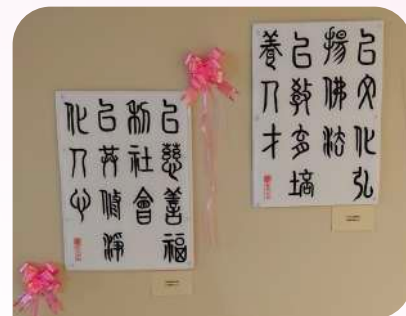 以文化弘
揚佛法
以教育培
養人才
以慈善福
利社會
以共修淨
化人心